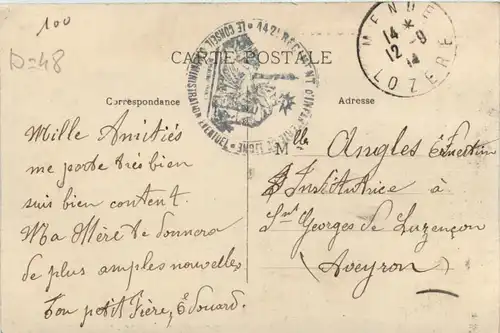 100
D=48
CARTE POSTALE
142e RÉGIMENT D'INFANTERIE DE LIGNE
LE CONSEIL D'ADMINISTRATION EVENTUEL
MENDE
14 *
12 -9
14
LOZERE
Correspondance
Adresse
Mille Amitiés
me porte très bien
suis bien content.
Ma Mère te donnera
de plus amples nouvelles
Ton petit Frère, Edouard.
Mlle Angles Ernestine
Institutrice à
St Georges de Luzençon
(Aveyron)